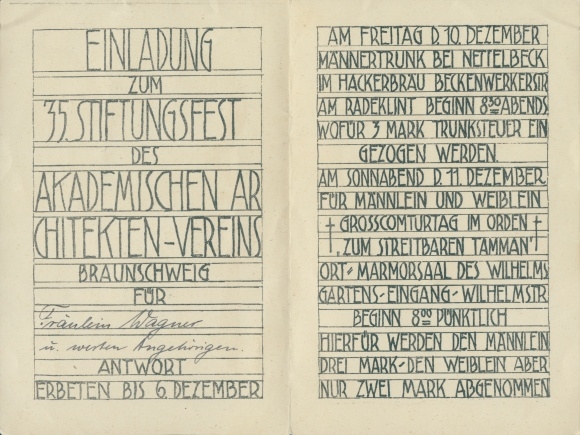 EINLADUNG
ZUM
35. STIFTUNGSFEST
DES
AKADEMISCHEN AR
CHITEKTEN-VEREINS
BRAUNSCHWEIG
FÜR
Fräulein Wagner
u. werten Angehörigen.
ANTWORT
ERBETEN BIS 6. DEZEMBER
AM FREITAG D. 10. DEZEMBER
MÄNNERTRUNK BEI NETTELBECK
IM HACKERBRÄU BECKENWERKERSTR
AM RADEKLINT BEGINN 8 30 ABENDS
WOFÜR 3 MARK TRUNKSTEUER EIN
GEZOGEN WERDEN.
AM SONNABEND D. 11. DEZEMBER
FÜR MÄNNLEIN UND WEIBLEIN
† GROSSCOMTURTAG IM ORDEN †
„ZUM STREITBAREN TAMMAN"
ORT-MARMORSAAL DES WILHELMS
GARTENS-EINGANG-WILHELMSTR.
BEGINN 8 00 PÜNKTLICH
HIERFÜR WERDEN DEN MÄNNLEIN
DREI MARK-DEN WEIBLEIN ABER
NUR ZWEI MARK ABGENOMMEN